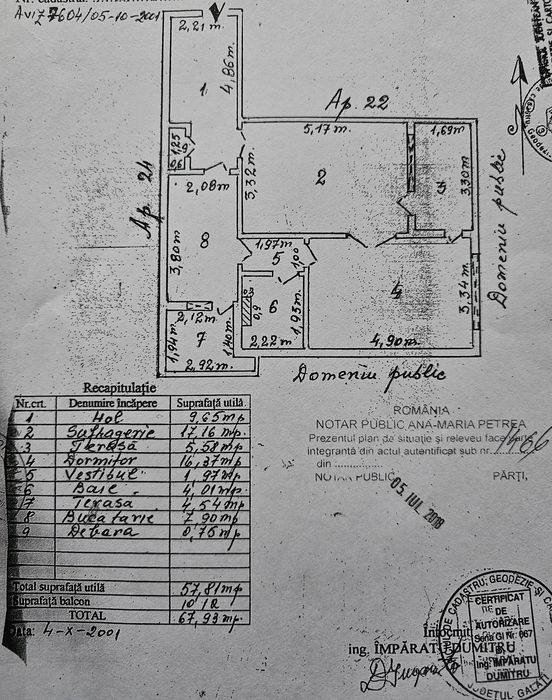 Nr. cadastral:
Aviz 7604/05-10-2001
2,21 m.
4,86 m.
1
Ap. 22
5,17 m.
1,69 m.
1,25
9
0,6
3,32 m.
2
3
3,30 m.
Ap. 24
2,08 m.
Domeniu public
3,80 m.
8
1,97 m.
5
1,00
4
3,34 m.
0,9
6
1,93 m.
2,12 m.
1,94 m.
7
1,40 m.
2,22 m.
4,90 m.
2,92 m.
Domeniu public
Recapitulaţie
Nr.crt. Denumire încăpere Suprafaţă utilă
1 Hol 9,65 mp
2 Sufragerie 17,16 mp.
3 Terasă 5,58 mp.
4 Dormitor 16,37 mp.
5 Vestibul 1,97 mp
6 Baie 4,01 mp.
7 Terasa 4,54 mp.
8 Bucatarie 7,90 mp
9 Debara 0,75 mp.
Total suprafaţă utilă 57,81 mp
Suprafaţă balcon 10,12
TOTAL 67,93 mp.
Data: 4-X-2001
ROMÂNIA
NOTAR PUBLIC ANA-MARIA PETREA
Prezentul plan de situaţie şi releveu face parte
integrantă din actul autentificat sub nr. 1166
din ..............
NOTAR PUBLIC PĂRŢI,
05. IUL. 2018
Întocmit,
ing. ÎMPĂRATU DUMITRU
DE CADASTRU, GEODEZIE ŞI
CERTIFICAT
DE
AUTORIZARE
Seria Gl Nr. 067
Ing. ÎMPĂRATU
DUMITRU
JUDEŢUL GALAŢI